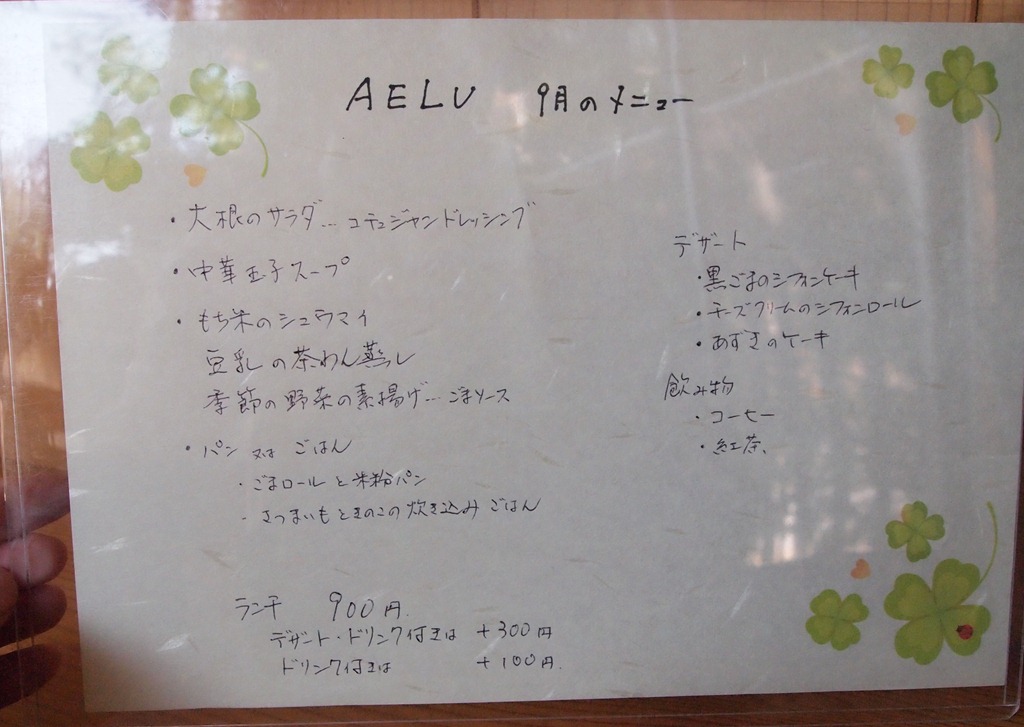 AELU 9月のメニュー
・大根のサラダ… コチュジャンドレッシング
・中華玉子スープ
・もち米のシュウマイ
豆乳の茶わん蒸し
季節の野菜の素揚げ… ごまソース
・パン 又は ごはん
・ごまロールと米粉パン
・さつまいもときのこの炊き込みごはん
ランチ 900円.
デザート・ドリンク付きは +300円
ドリンク付きは +100円.
デザート
・黒ごまのシフォンケーキ
・チーズクリームのシフォンロール
・あずきのケーキ
飲み物
・コーヒー
・紅茶、